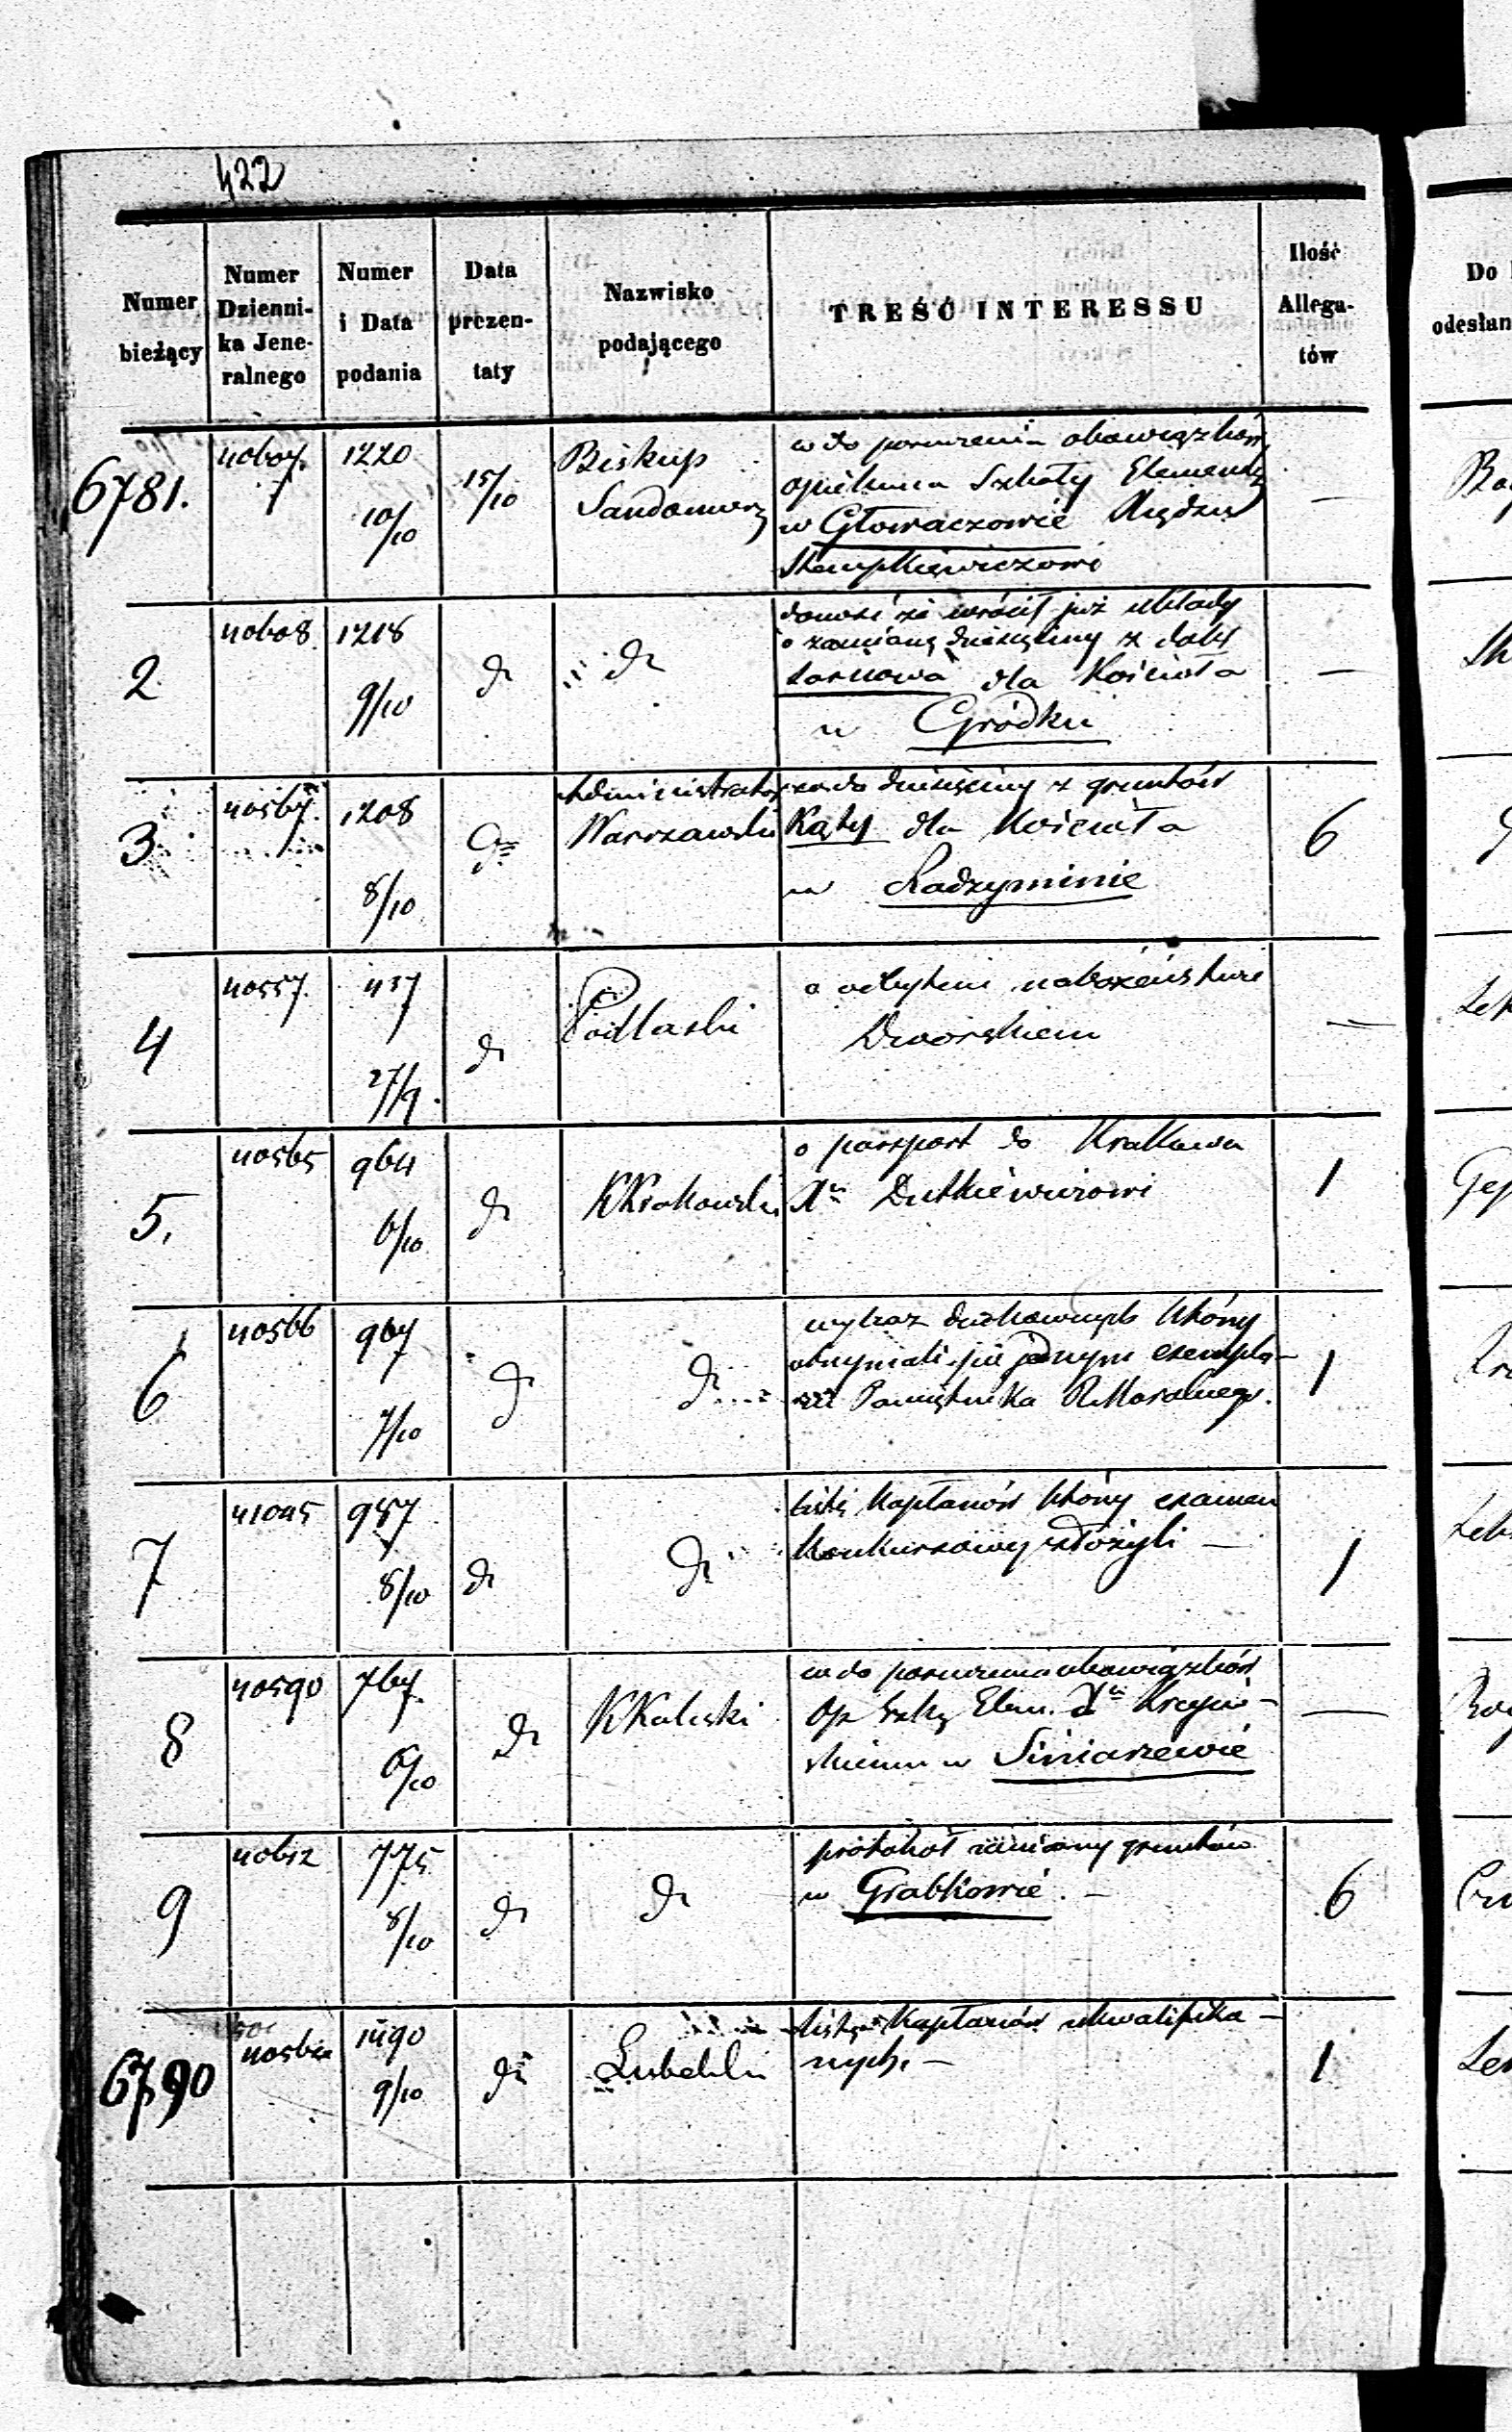 422
Numer bieżący
Numer Dzienni-ka Jene-ralnego
Numer i Data podania
Data prezen-taty
Nazwisko podającego
TREŚĆ INTERESSU
Ilość Allega-tów
Do
odesłan
6781. 40607. 1220 10/10 15/10 Biskup Sandomierz
w do poruczenia obowiązków
opiekuna Szkoły Elementr
w Głowaczowie Księdzu
—
2 40608. 1218 9/10 dr dr
donosi że wrócił już układy
o zamianę dziesięciny z dóbr
Tarnowa dla Kościoła
w Gródku
—
3 40567. 1208 8/10 Administrator Warszawski
co do dziesięciny z gruntów
Kąty dla Kościoła
w Radzyminie
6
4 40557. 437 27/9. dr Podlaski
o odbytem nabożeństwie
Dworskiem
—
5. 40565 964 6/10 dr KKrakowski
o paszport do Krakowa
Xu Dutkiewiczowi
1
6 40566 967 7/10 dr dr
wykaz duchownych którzy
otrzymali po jednym exempla-
rzu Pamiętnika R. Moralnego.
1
7 41045 957 8/10 dr dr
listę Kapłanów którzy examen
konkursowy złożyli —
1
8 40590 767. 6/10 dr KKaliski
co do poruczenia obowiązków
Op Szkoł Elem. Xu
skiemu w Siniarzewie
—
9 40612 775 8/10 dr dr
protokół zamiany gruntów
w Grabkowie. —
6
6790 1490 9/10 dr Lubelski
listę Kapłanów ukwalifika-
nych. —
1